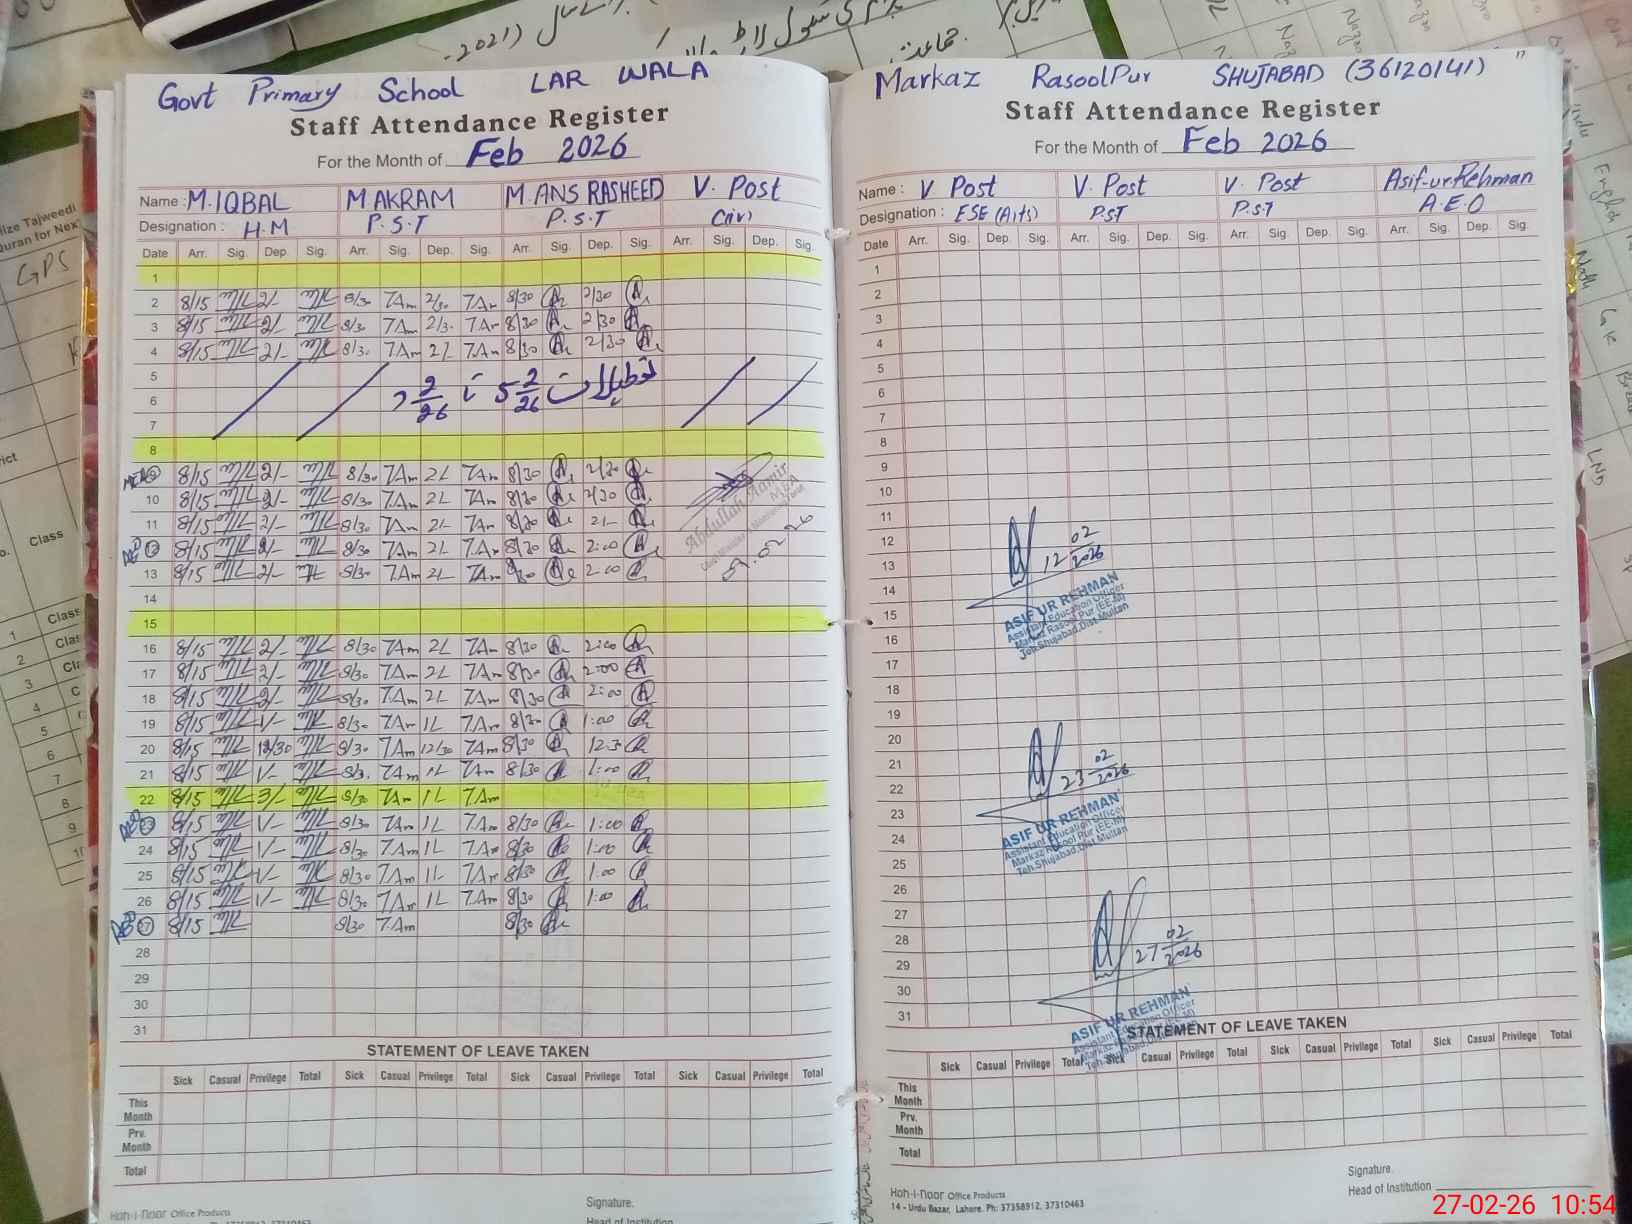 Govt Primary School LAR WALA
Staff Attendance Register
For the Month of Feb 2026
Name : M.IQBAL M AKRAM M.ANS RASHEED V. Post
Designation : H.M P.S.T P.S.T (iv)
Date Arr. Sig. Dep. Sig. Arr. Sig. Dep. Sig. Arr. Sig. Dep. Sig. Arr. Sig. Dep. Sig.
1
2 8/15 2/- 8/30 7Am 2/30 7Am 8/30 2/30
3 8/15 2/- 8/30 7Am 2/3. 7Am 8/30 2/30
4 8/15 2/- 8/30 7Am 2L 7Am 8/30 2/30
5
6 تعطیلات 5 2/26 تا 2/26
7
8
MEA 9 8/15 2/- 8/30 7Am 2L 7Am 8/30 2/30
10 8/15 2/- 8/30 7Am 2L 7Am 8/30 2/30
11 8/15 2/- 8/30 7Am 2L 7Am 8/30 2L
AEO 12 8/15 2/- 8/30 7Am 2L 7Am 8/30 2:00
13 8/15 2/- 8/30 7Am 2L 7Am 8/30 2:00
Abdullah Aamir
MEA
09.02.26
14
15
16 8/15 2/- 8/30 7Am 2L 7Am 8/30 2:00
17 8/15 2/- 8/30 7Am 2L 7Am 8/30 2:00
18 8/15 2/- 8/30 7Am 2L 7Am 8/30 2:00
19 8/15 1/- 8/30 7Am 1L 7Am 8/30 1:00
20 8/15 12/30 8/30 7Am 12/30 7Am 8/30 12:3
21 8/15 1/- 8/3. 7Am 1L 7Am 8/30 1:00
22 8/15 3/- 8/30 7Am 1L 7Am
AEO 23 8/15 1/- 8/30 7Am 1L 7Am 8/30 1:00
24 8/15 1/- 8/30 7Am 1L 7Am 8/30 1:00
25 8/15 1/- 8/30 7Am 1L 7Am 8/30 1:00
26 8/15 1/- 8/30 7Am 1L 7Am 8/30 1:00
AEO 27 8/15 8/30 7Am 8/30
28
29
30
31
STATEMENT OF LEAVE TAKEN
Sick Casual Privilege Total Sick Casual Privilege Total Sick Casual Privilege Total Sick Casual Privilege Total
This Month
Prv. Month
Total
Signature.
Head of Institution
Hoh-i-noor Office Products
Markaz RasoolPur SHUJABAD (36120141)
Staff Attendance Register
For the Month of Feb 2026
Name : V Post V. Post V. Post Asif-ur-Rehman
Designation : ESE (Arts) P.ST P.S.T A.E.O
Date Arr. Sig. Dep. Sig. Arr. Sig. Dep. Sig. Arr. Sig. Dep. Sig. Arr. Sig. Dep. Sig.
1
2
3
4
5
6
7
8
9
10
11
12
13
14
15
16
17
18
19
20
21
22
23
24
25
26
27
28
29
30
31
12 02/2026
ASIF UR REHMAN
Assistant Education Officer
Markaz Rasool Pur (EE.M)
Teh.Shujabad,Dist.Multan
23 02/2026
ASIF UR REHMAN
Assistant Education Officer
Markaz Rasool Pur (EE.M)
Teh.Shujabad,Dist.Multan
27 02/2026
ASIF UR REHMAN
Assistant Education Officer
STATEMENT OF LEAVE TAKEN
Sick Casual Privilege Total Sick Casual Privilege Total Sick Casual Privilege Total Sick Casual Privilege Total
This Month
Prv. Month
Total
Signature.
Head of Institution
Hoh-i-noor Office Products
14 - Urdu Bazar, Lahore. Ph: 37358912, 37310463
27-02-26 10:54